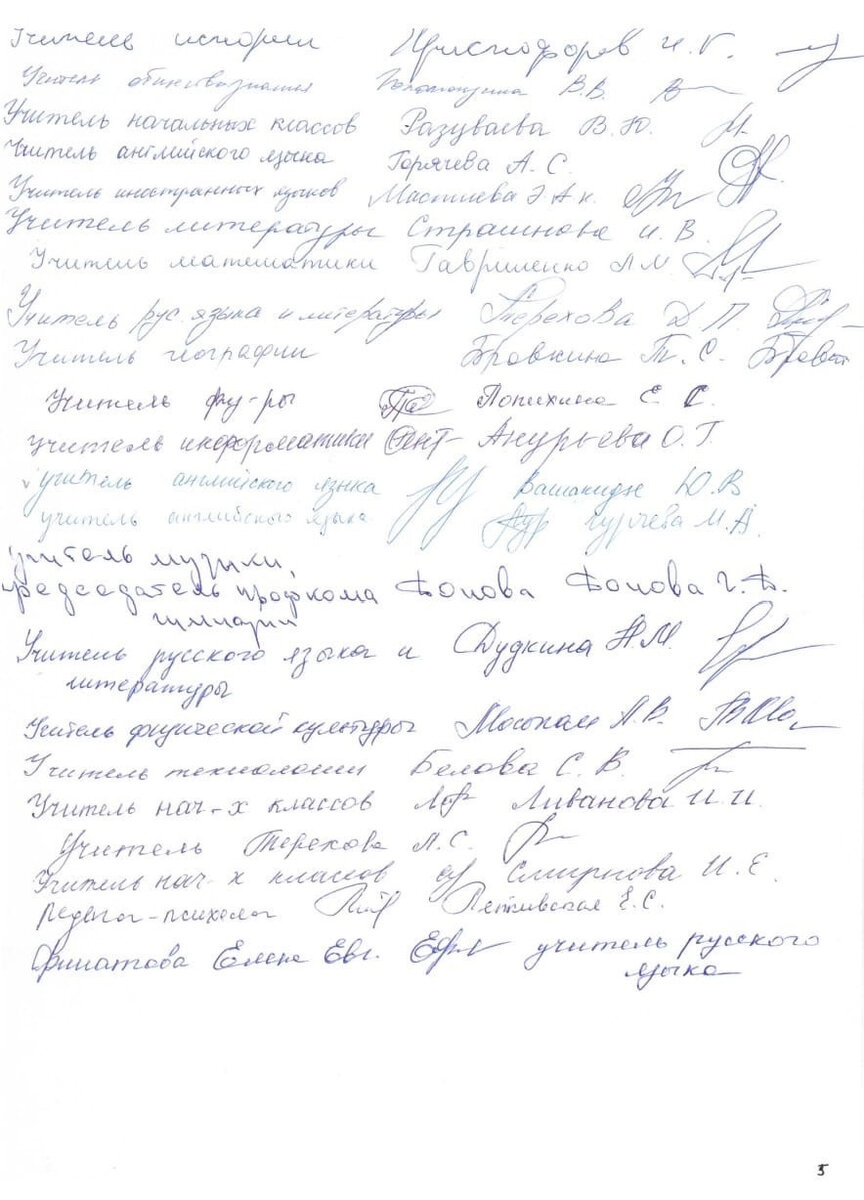 Учитель истории Христофоров И.Г.
Учитель обществознания В.В.
Учитель начальных классов Разуваева В.Ю.
Учитель английского языка Горячева А.С.
Учитель иностранных языков
Учитель литературы Страшнова И.В.
Учитель математики Гавриленко Л.М.
Учитель рус. языка и литературы Терехова Д.П.
Учитель географии Бровкина Т.С.
Учитель фи-ры Попихина Е.С.
учитель информатики Анурьева О.Г.
учитель английского языка Вашакидзе Ю.В
учитель английского языка М.А.
учитель музыки,
председатель профкома Фонова Фонова Г.Ф.
гимназии
Учитель русского языка и Дудкина Н.М.
литературы
Учитель физической культуры Л.В.
Учитель технологии Белова С.В.
Учитель нач-х классов Ливанова И.И.
Учитель Терехова Л.С.
Учитель нач-х классов Смирнова И.Е.
Педагог-психолог Е.С.
Филатова Елена Евг. учитель русского
языка
5